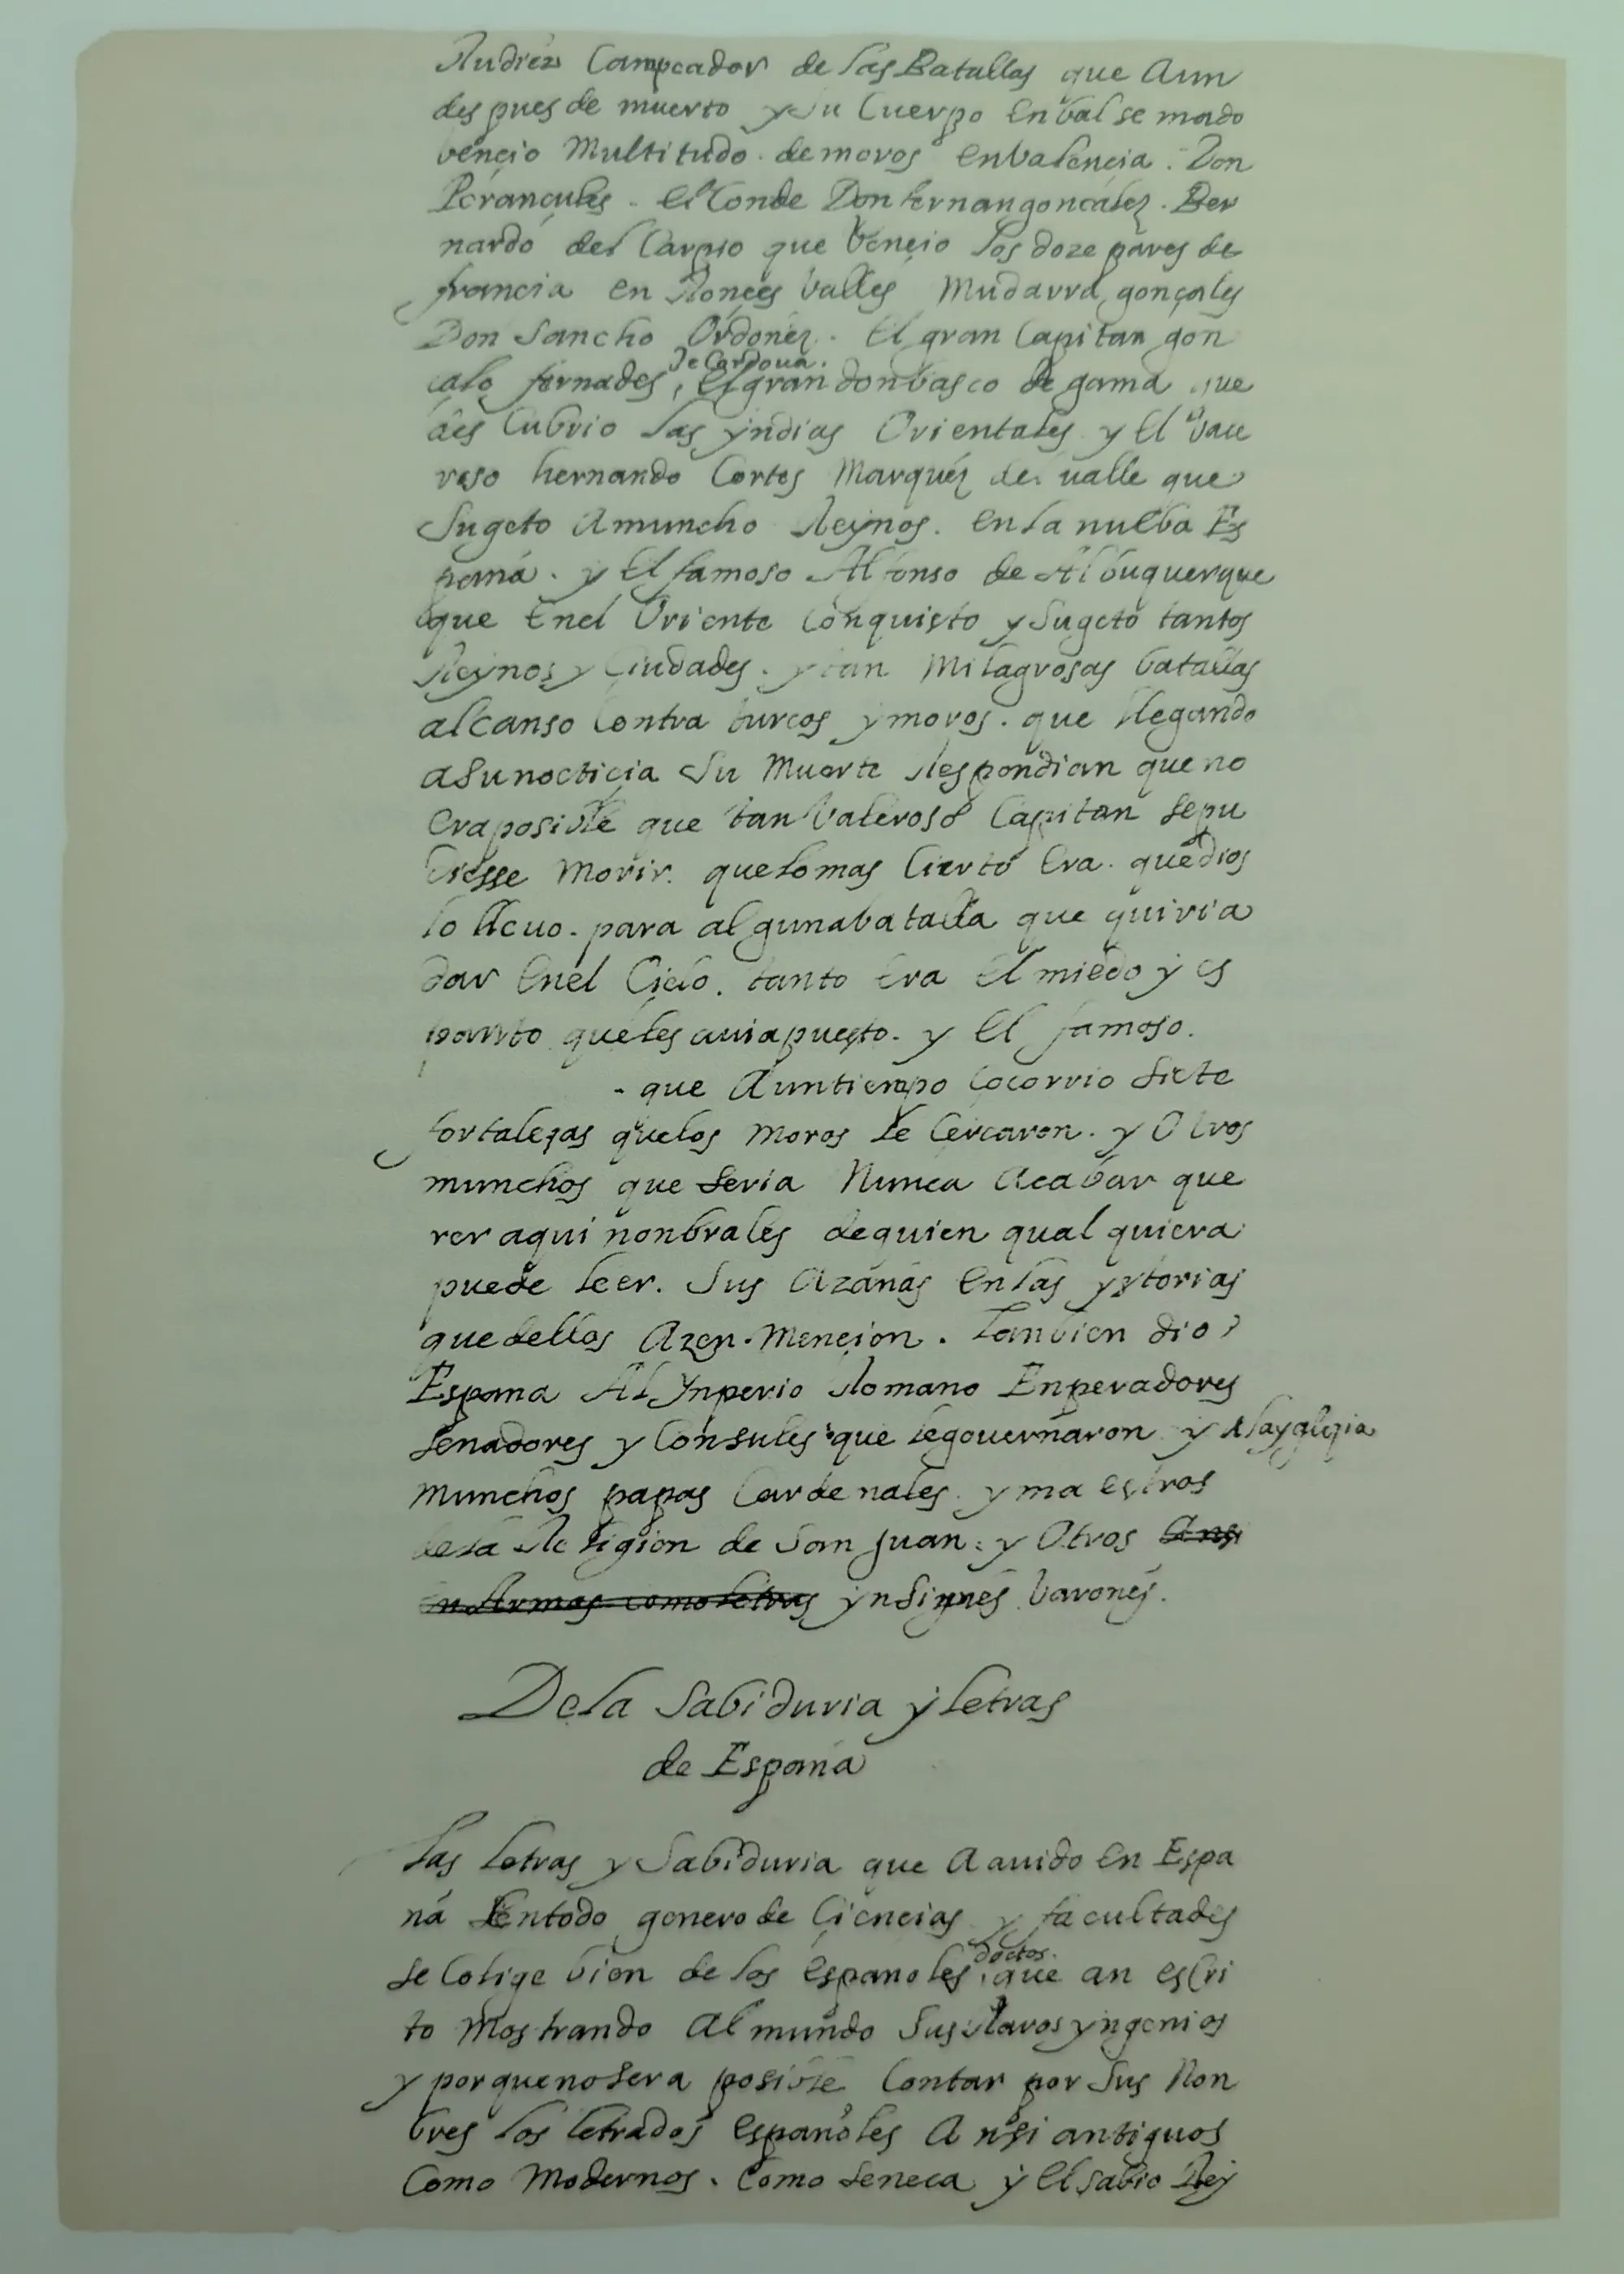 Rudiez Campeador de las Batallas que Aun
des pues de muerto y su Cuerpo enbal se mado
bençio Multitudo. de moros en balençia. Don
Perançules. el Conde Don fernan gonçalez. Ber
nardo del Carpio que bençio los doze pares de
françia en Ronçes balles Mudarra gonçales
Don Sancho Ordoñez. El gran Capitan gon
de Cordoua.
çalo fernades, el gran don basco de gama que
des Cubrio las yndias Orientales y El bale
roso hernando Cortes Marquez del valle que
Sugeto A muncho Reynos. en la nueba Es
pana. y El famoso Alfonso de Albuquerque
que Enel Oriente Conquisto y Sugeto tantos
Reynos y Ciudades. y tan Milagrosas batallas
alcanso Contra turcos y moros. que llegando
a su nocticia Su Muerte Respondian que no
era posible que tan baleroso Capitan se pu
diesse Morir. que lo mas Cierto Era. que dios
lo lleuo. para alguna batalla que quiria
dar Enel Cielo. tanto Era El miedo y es
panto que les auia puesto. y El famoso.
- que A un tiempo Cocorrio Siete
fortalezas que los Moros le Cercaron. y Otros
munchos que seria Nunca Acabar que
rer aqui nonbrales de quien qual quiera
puede leer. Sus Azañas en las ystorias
que dellos Azen. Mençion. tanbien dio
España Al ynperio Romano Enperadores
Senadores y Consules que le gouernaron y A la yglezia
Munchos papas Cardenales. y ma estros
de la Religion de San Juan. y Otros Ansi
en Armas como letras ynsignes barones.
De la Sabiduria y letras
de España
Las letras y Sabiduria que A auido en Espa
ña En todo genero de Ciençias y facultades
doctos.
se Colige bien de los españoles, que an escri
to Mostrando Al mundo Sus Raros yngenios
y por que no sera posible Contar por Sus Non
bres los letrados españoles Ansi antiguos
Como Modernos. Como Seneca y El sabio Rey